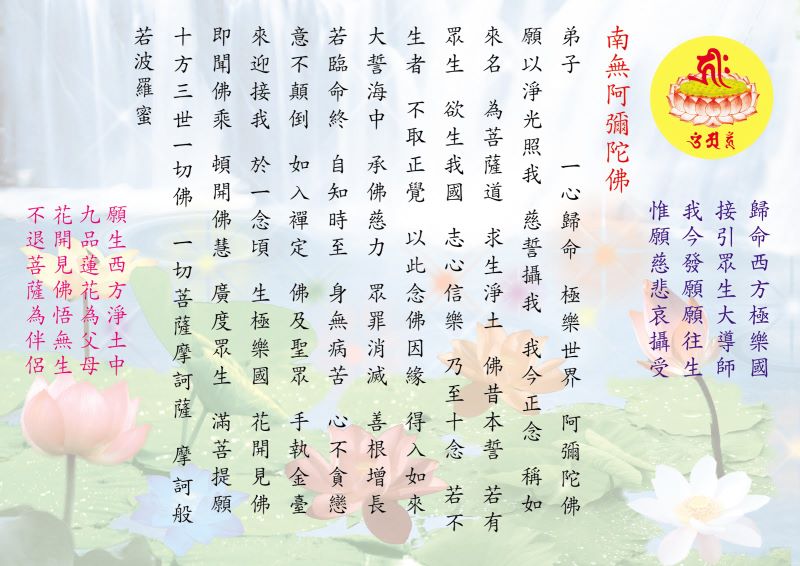 歸命西方極樂國
接引眾生大導師
我今發願願往生
惟願慈悲哀攝受
南無阿彌陀佛
弟子　　一心歸命　極樂世界　阿彌陀佛
願以淨光照我　慈誓攝我　我今正念　稱如
來名　為菩薩道　求生淨土　佛昔本誓　若有
眾生　欲生我國　志心信樂　乃至十念　若不
生者　不取正覺　以此念佛因緣　得入如來
大誓海中　承佛慈力　眾罪消滅　善根增長
若臨命終　自知時至　身無病苦　心不貪戀
意不顛倒　如入禪定　佛及聖眾　手執金臺
來迎接我　於一念頃　生極樂國　花開見佛
即聞佛乘　頓開佛慧　廣度眾生　滿菩提願
十方三世一切佛　一切菩薩摩訶薩　摩訶般
若波羅蜜
願生西方淨土中
九品蓮花為父母
花開見佛悟無生
不退菩薩為伴侶